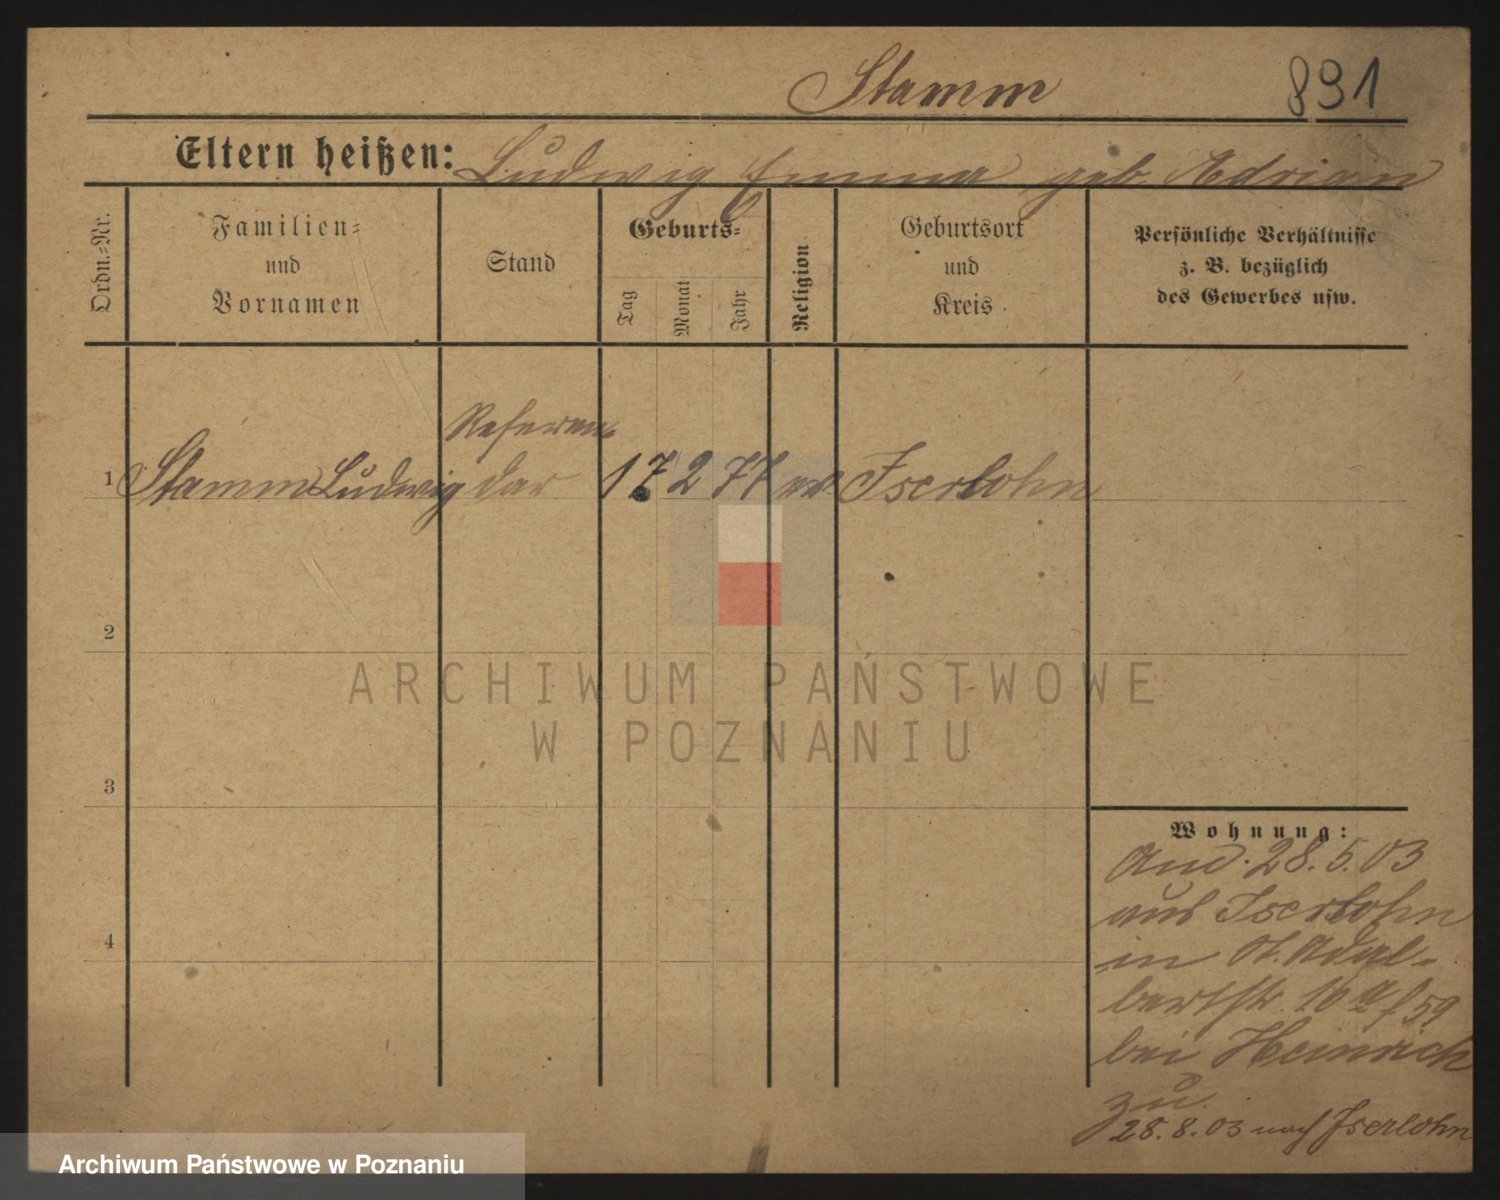 Stamm 891
Eltern heißen: Ludwig Emma geb. Adrian
Ordn.-Nr.
Familien-
und
Vornamen
Stand
Geburts-
Tag
Monat
Jahr
Religion
Geburtsort
und
Kreis
Persönliche Verhältnisse
z. B. bezüglich
des Gewerbes usw.
Referen-
1 Stamm Ludwig dar 17 2 77 ev Iserlohn
2
3
4
Wohnung:
And. 28.5.03
aus Iserlohn
in St. Adal-
bertstr. 16a f 59
bei Heinrich
zu
28.8.03 nach Iserlohn
ARCHIWUM PAŃSTWOWE
W POZNANIU
Archiwum Państwowe w Poznaniu